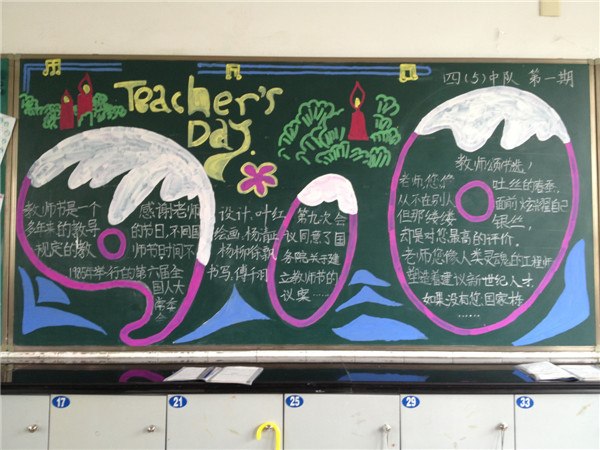 Teacher's
Day.
四(5)中队 第一期
教师节是一个
多年来的教导
规定的教
感谢老师
的节日,不同国
师节时间不
1985年举行的第六届全
国人大
常委
会
设计:叶红
绘画:杨清
杨柳
书写:傅
第九次会
议同意了国
务院关于建
立教师节的
议案……
教师颂精选!
老师,您
从不在别人
但那缕缕
吐丝的
面前炫耀自己
银丝,
却是对您最高的评价。
老师您像人类灵魂的工程师
塑造着建设新世纪人才
如果没有您国家栋
……
17
21
25
29
33